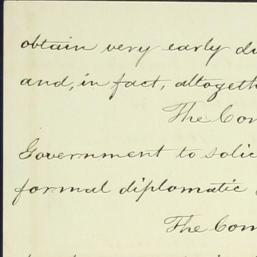 obtain very early
and, in fact, altogeth
The Com
Government to solic
formal diplomatic
The Com